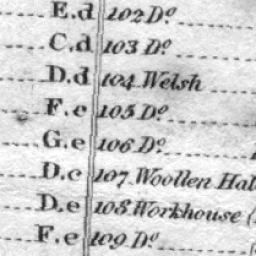 E.d 102 Do.
C.d 103 Do.
D.d 104 Welsh
F.c 105 Do.
G.e 106 Do.
D.c 107 Woollen Hal
D.e 108 Workhouse (
F.e 109 Do.